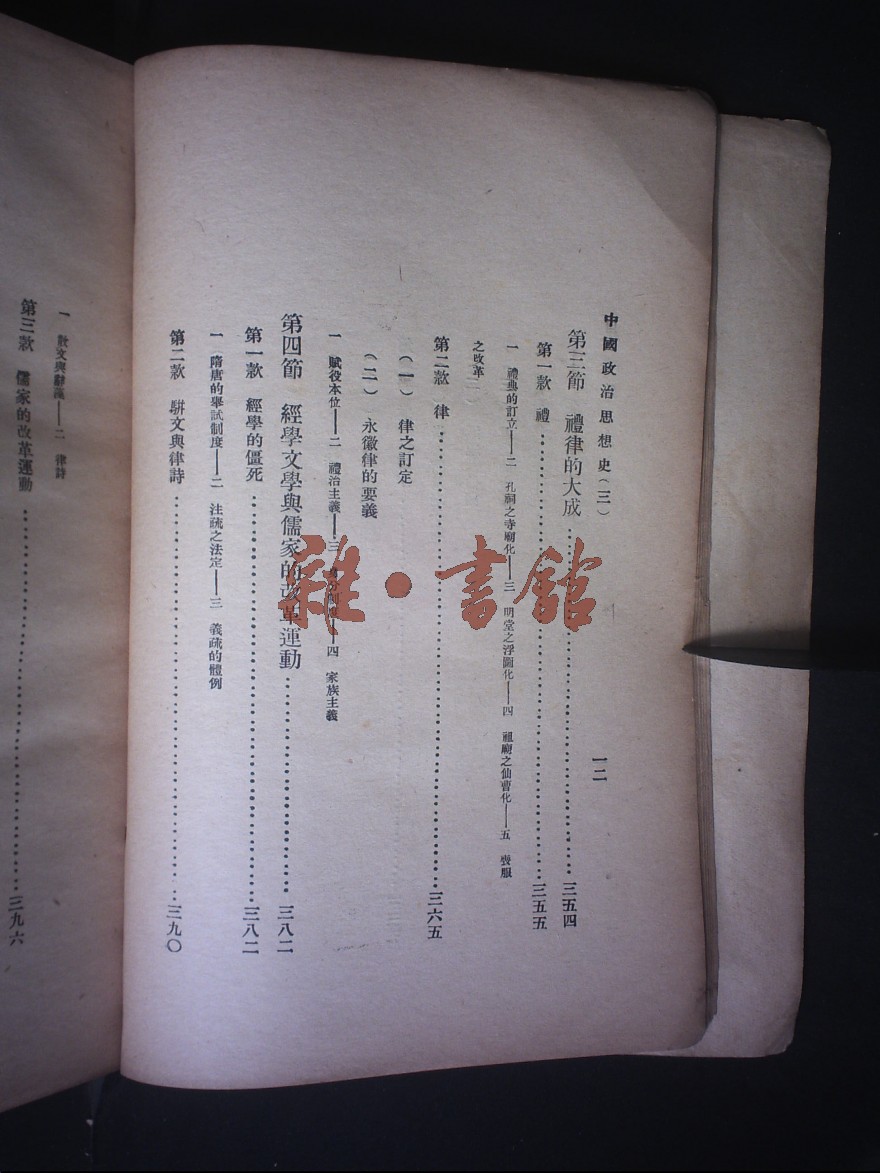 中國政治思想史（三）
一二
第三節　禮律的大成……三五四
第一款　禮……三五五
一　禮典的訂立——二　孔祠之寺廟化——三　明堂之浮圖化——四　祖廟之仙曹化——五　喪服
之改革
第二款　律……三六五
（一）律之訂定
（二）永徽律的要義
一　賦役本位——二　禮治主義——三　四　家族主義
第四節　經學文學與儒家的改革運動……三八二
第一款　經學的僵死……三八二
一　隋唐的舉試制度——二　注疏之法定——三　義疏的體例
第二款　駢文與律詩……三九〇
一　散文與辭藻——二　律詩
第三款　儒家的改革運動……三九六
雜·書館